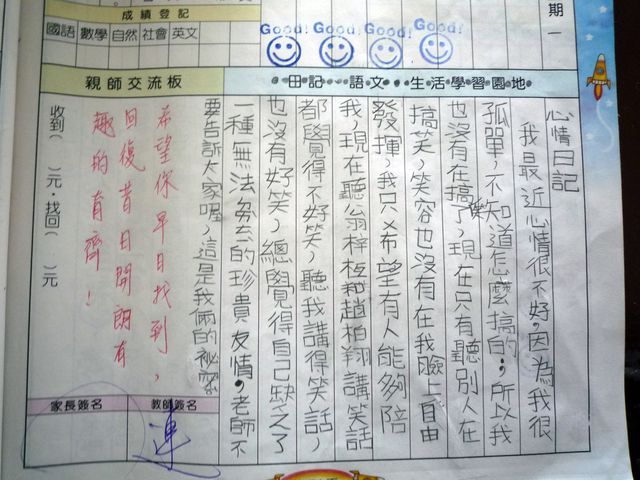 期一
Good! Good! Good! Good!
成績登記
國語 數學 自然 社會 英文
親師交流板
日記、語文、生活學習園地
心情日記
我最近心情很不好,因為我很
孤單,不知道怎麼搞的,所以我
也沒有在搞笑了,現在只有聽別人在
搞笑,笑容也沒有在我臉上自由
發揮,我只希望有人能夠陪
我,現在聽翁梓桓和趙柏翔講笑話
都覺得不好笑,聽我講得笑話,
也沒有好笑,總覺得自己缺乏了
一種無法失去的珍貴友情,老師不
要告訴大家喔,這是我倆的祕密
希望你早日找到,
回復昔日開朗有
趣的育齊!
收到( )元,找回( )元
家長簽名 教師簽名
連